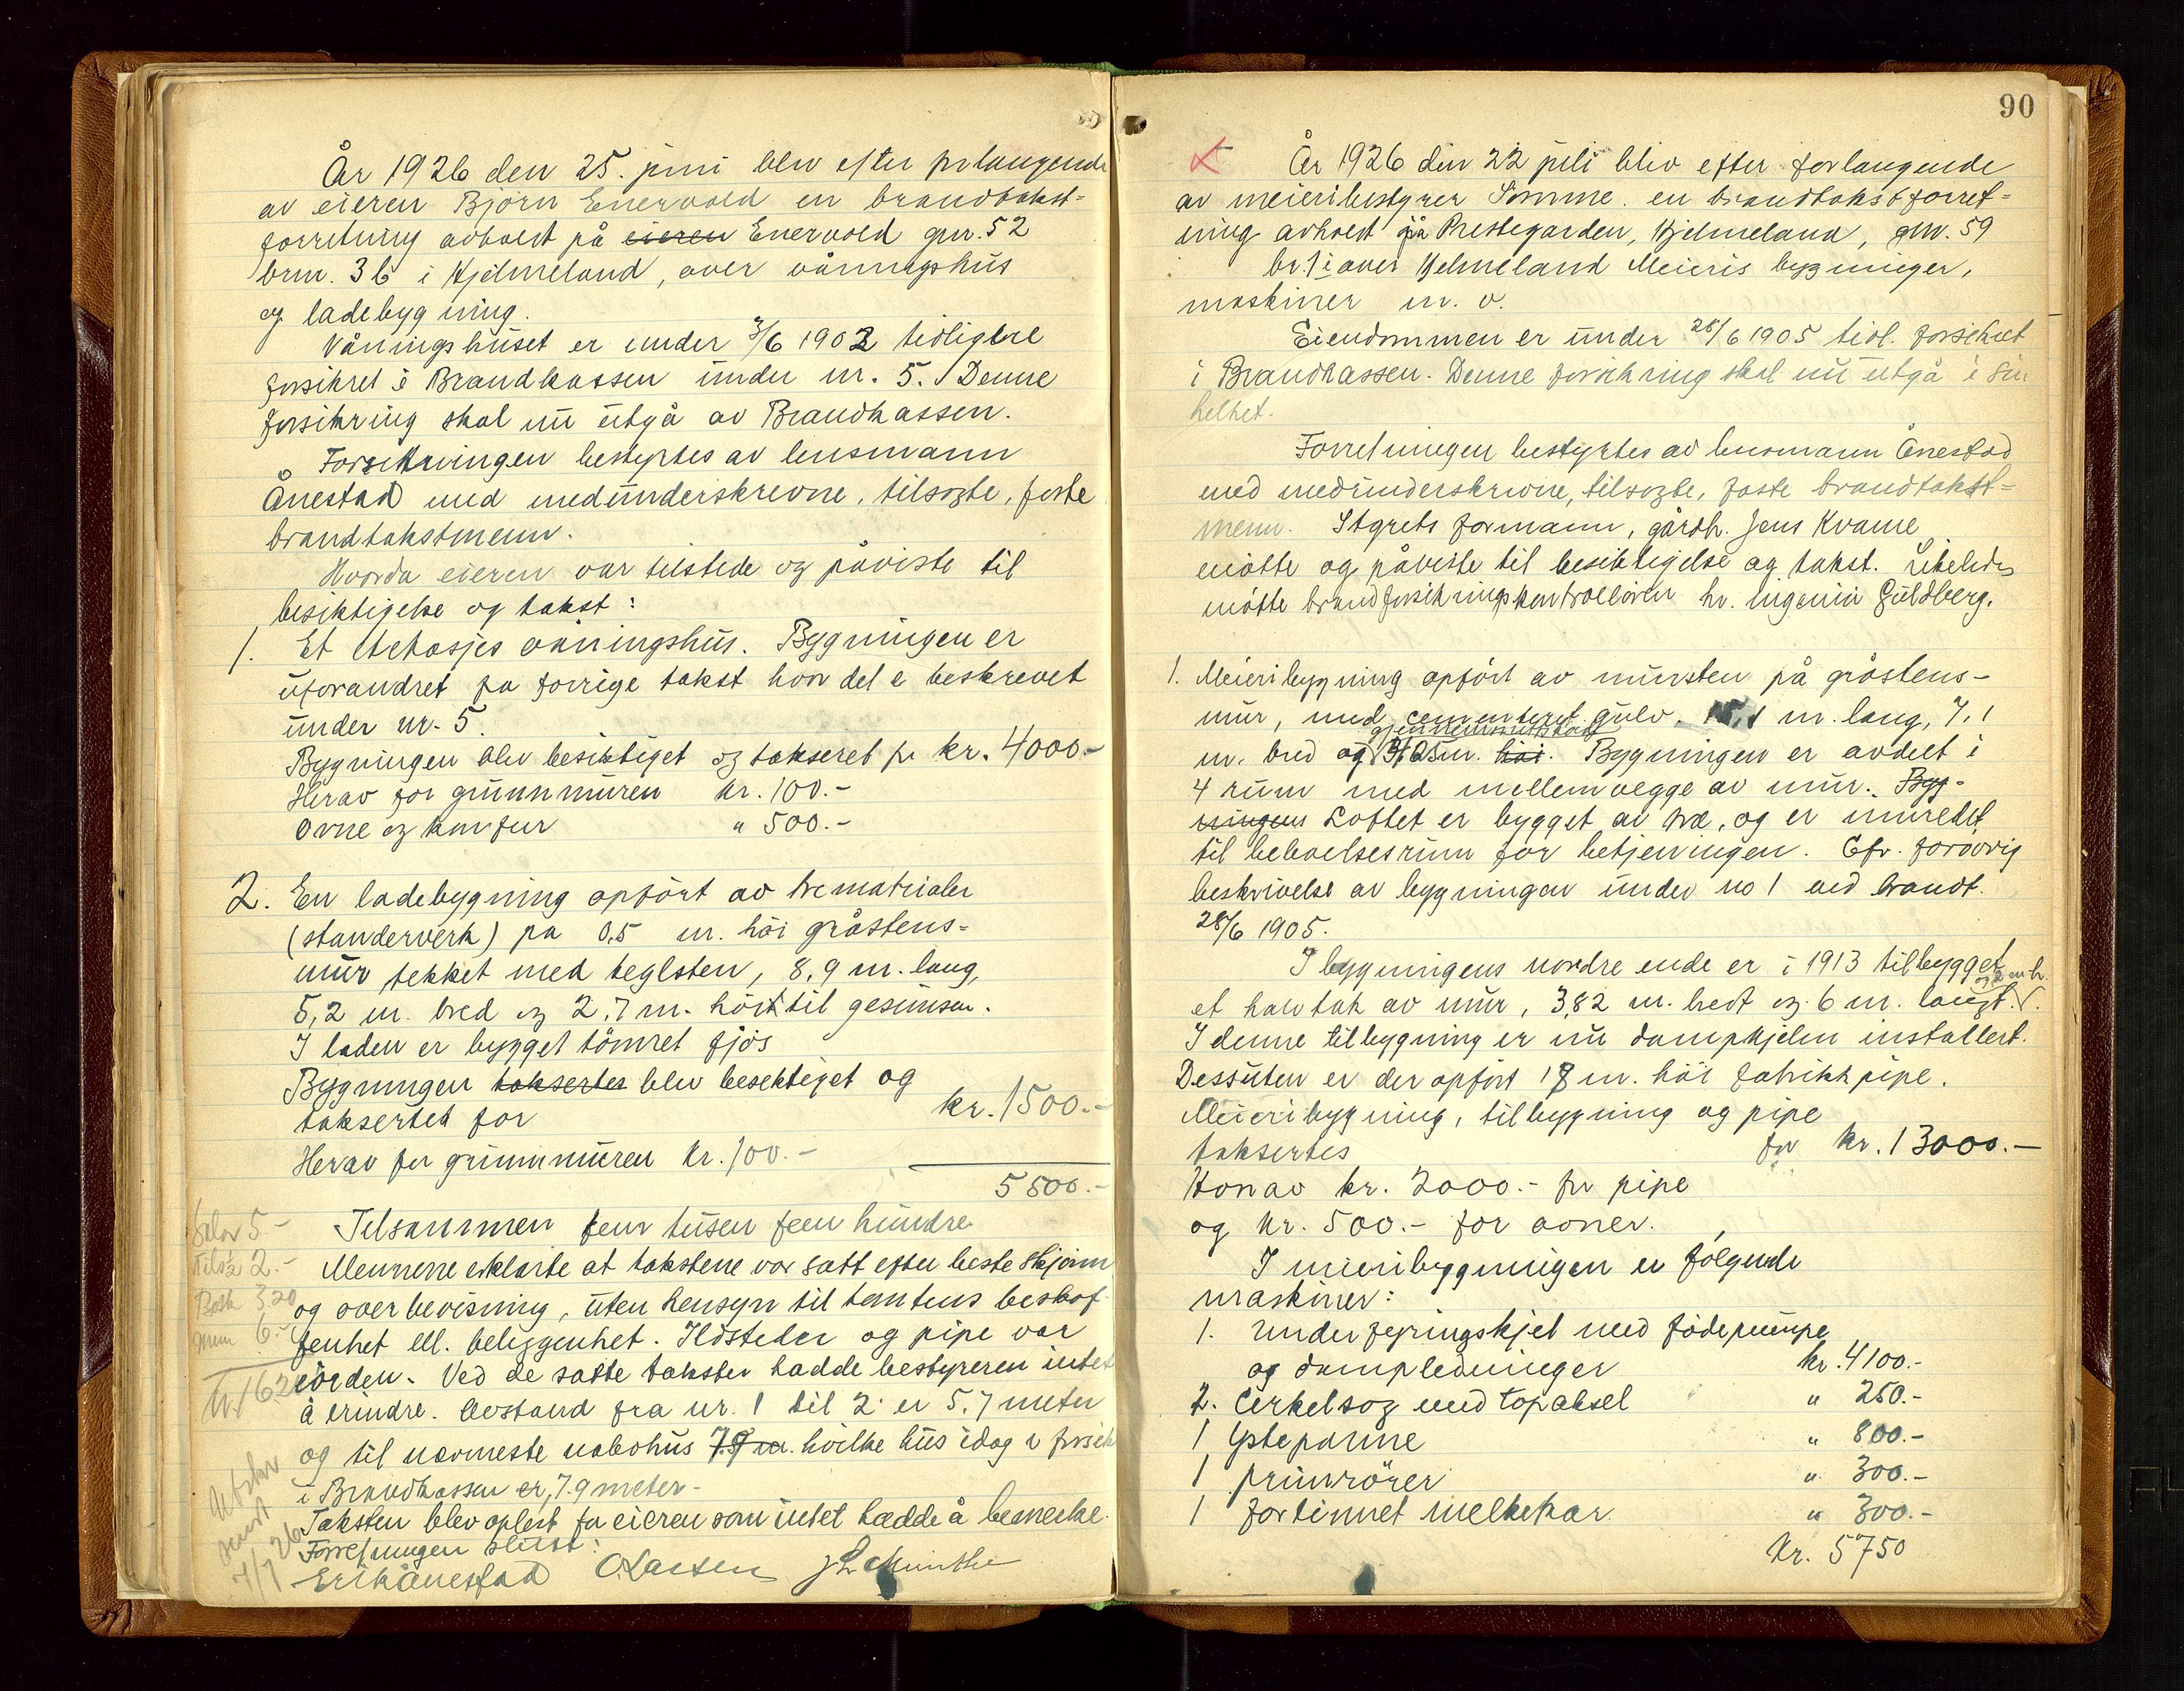 År 1926 den 25. juni blev efter forlangende
av eieren Bjørn Enervold en brandtakst-
forretning avholdt på eieren Enervold gnr. 52
brnr. 36 i Hjelmeland, over våningshus
og ladebygning.
Våningshuset er under 3/6 1902 tidligere
forsikret i Brandkassen under nr. 5. Denne
forsikring skal nu utgå av Brandkassen.
Forretningen bestyrtes av lensmann
Ånestad med medunderskrevne, tilsagte, faste
brandtakstmenn.
Hvorda eieren var tilstede og påviste til
besiktigelse og takst:
1. Et etasjes våningshus. Bygningen er
uforandret fra forrige takst hvor det e beskrevet
under nr. 5.
Bygningen blev besiktiget og taksert for kr. 4000.-
Herav for grunnmuren kr. 100.-
Ovne og komfur " 500.-
2. En ladebygning opført av trematrialer
(standerverk) på 0,5 m. høi gråstens-
mur tekket med teglsten, 8,9 m. lang,
5,2 m. bred og 2,7 m. høi til gesimsen.
I laden er bygget tømret fjøs
Bygningen taksertes blev besiktiget og
taksertet for kr. 1500.-
Herav for grunnmuren kr. 100.-
5500.-
Tilsammen fem tusen fem hundre
Mennene erklærte at takstene var satt efter beste skjønn
og overbevisning, uten hensyn til tomtens beskaf-
fenhet ell. beliggenhet. Ildsteder og pipe var
iorden. Ved de satte takster hadde bestyreren intet
å erindre. Avstand fra nr. 1 til 2 er 5.7 meter
og til nærmeste nabohus 7.9 m. hvilke hus idag e forsik
i Brandkassen er, 7.9 meter-
Taksten blev oplest for eieren som intet hadde å bemerke.
Forretningen slutt:
Erik Ånestad O. Larsen
5.-
2.-
3.20
6.-
Utskr
sendt
7/7 26
90
År 1926 den 22 juli blev efter forlangende
av meieribestyrer Somme. en brandtakstforret-
ning avholdt på Prestegarden, Hjelmeland, gnr. 59
br. 1 i over Hjelmeland Meieris bygninger,
maskiner m. v.
Eiendommen er under 28/6 1905 tidl. forsikret
i Brandkassen. Denne forsikring skal nu utgå i sin
helhet.
Forretningen bestyrtes av lensmann Ånestad
med medunderskrivne, tilsagte, faste brandtakst-
menn. Styrets formann, gårdb. Jens Kvame
møtte og påviste til besiktigelse og takst. Likeledes
møtte brandforsikringskontrolløren hr. ingeniør Guldberg.
1. Meieribygning opført av mursten på gråstens-
mur, med cementeret gulv. 15,1 m. lang, 7,1
gjennemsnitshøide
m. bred og m. høi. Bygningen er avdelt i
4 rum med mellemvegge av mur. Byg-
ningens Loftet er bygget av træ, og er innredet
til beboelsesrum for betjeningen. Cfr. forøvrig
beskrivelse av bygningen under no 1 ved brandt.
28/6 1905.
I bygningens nordre ende er i 1913 tilbygget
et halvtak av mur, 3,82 m. bredt og 6 m. langt.
I denne tilbygning er nu dampkjelen installert.
Dessuten er der opført 18 m. høi fabrikkpipe.
Meieribygning, tilbygning og pipe
taksertes for kr. 13000.-
Hvorav kr. 2000.- for pipe
og kr. 500.- for ovner.
I meieribygningen er følgende
maskiner:
1. Underfyringskjel med fødepumpe
og dampledninger kr. 4100.-
2. Cirkelsag med topaksel " 250.-
1 Ystepanne " 800.-
1 primrører " 300.-
1 fortinnet melkekar " 300.-
Kr. 5750